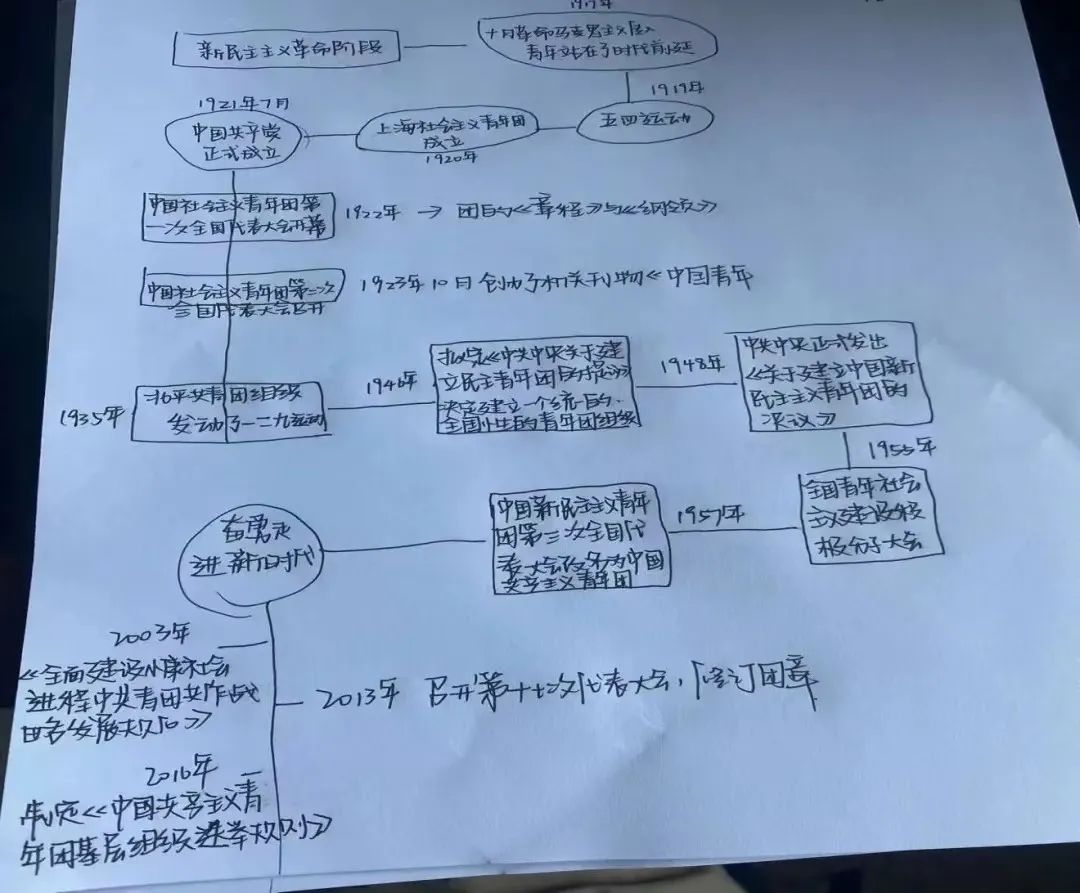 1917年
新民主主义革命阶段
十月革命马克思主义传入
青年站在了时代前沿
1919年
五四运动
上海社会主义青年团
成立
1920年
1921年7月
中国共产党
正式成立
中国社会主义青年团第
一次全国代表大会开幕
1922年 → 团的《章程》与《纲领》
中国社会主义青年团第二次
全国代表大会召开
1923年10日创办了机关刊物《中国青年
1935年
北平共青团组织
发动了一二九运动
1946年
拟定《中共中央关于建
立民主青年团的提议》
决定建立一个统一的、
全国性的青年团组织
1948年
中共中央正式发出
《关于建立中国新
民主主义青年团的
决议》
1955年
全国青年社会
主义建设积
极分子大会
1957年
中国新民主主义青年
团第三次全国代
表大会改名为中国
共产主义青年团
奋勇走
进新时代
2003年
《全面建设小康社会
进程中共青团工作战
略发展规划》
2013年 召开第十七次代表大会,修订团章
2016年
制定《中国共产主义青
年团基层组织选举规则》